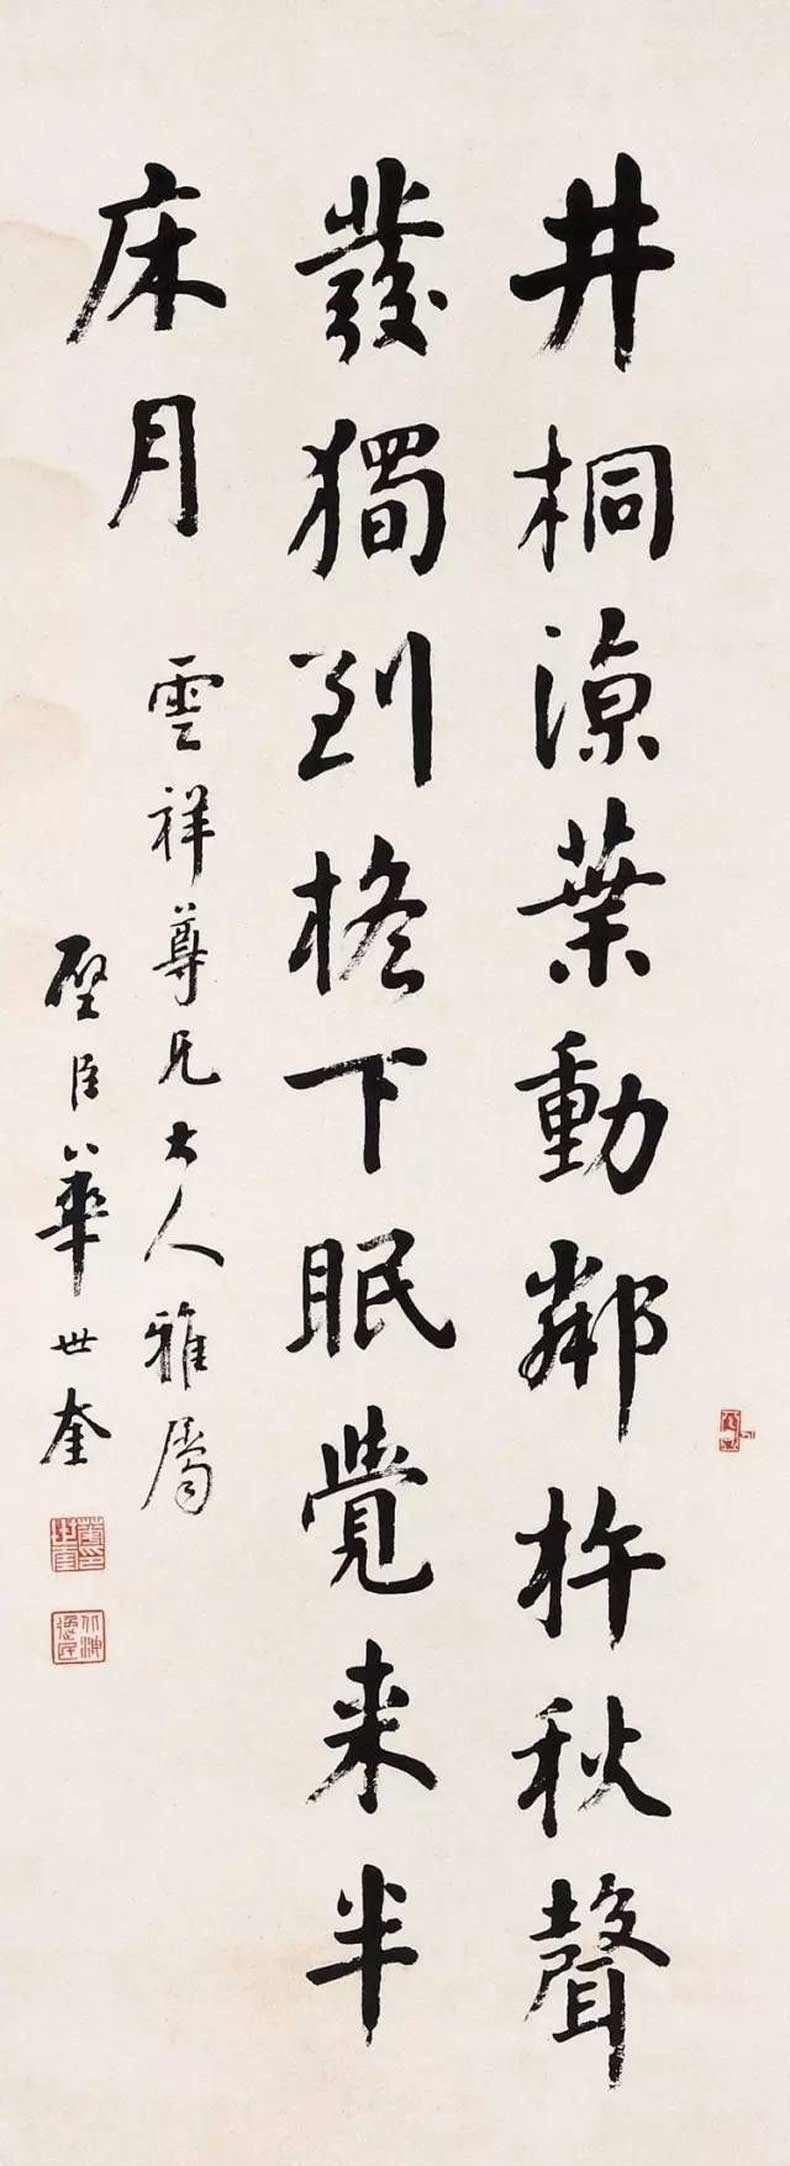 井桐涼葉動鄰杵秋聲
發獨到柊下眠覺来半
床月
雲祥尊兄大人雅屬
璧臣華世奎